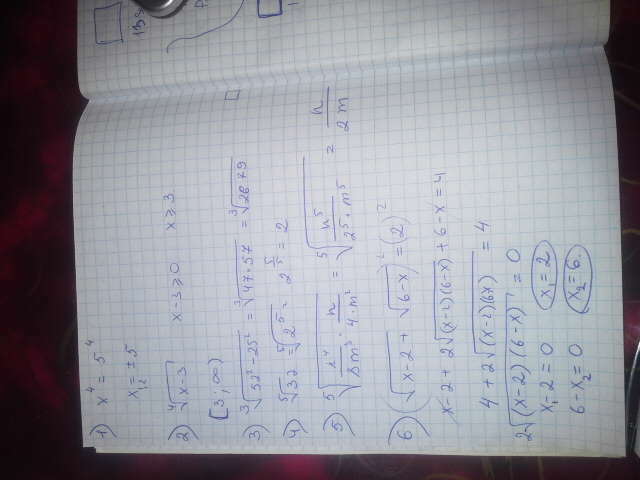 1) x⁴ = 5⁴
x₁,₂ = ±5
2) ⁴√(x-3) x-3≥0 x≥3
[3; ∞)
3) ³√(32²-25²) = ³√(47·57) = ³√2679
4) ⁵√32 = ⁵√2⁵ = 2^(5/5) = 2
5) ⁵√(n⁴/8m³ · n/4·m²) = ⁵√(n⁵/2⁵·m⁵) = n/2m
6) (√(x-2) + √(6-x))² = (2)²
x-2+2√((x-2)(6-x))+6-x=4
4+2√((x-2)(6x)) = 4
2√((x-2)(6-x)) = 0
x₁-2=0 x₁=2
6-x₂=0 x₂=6.